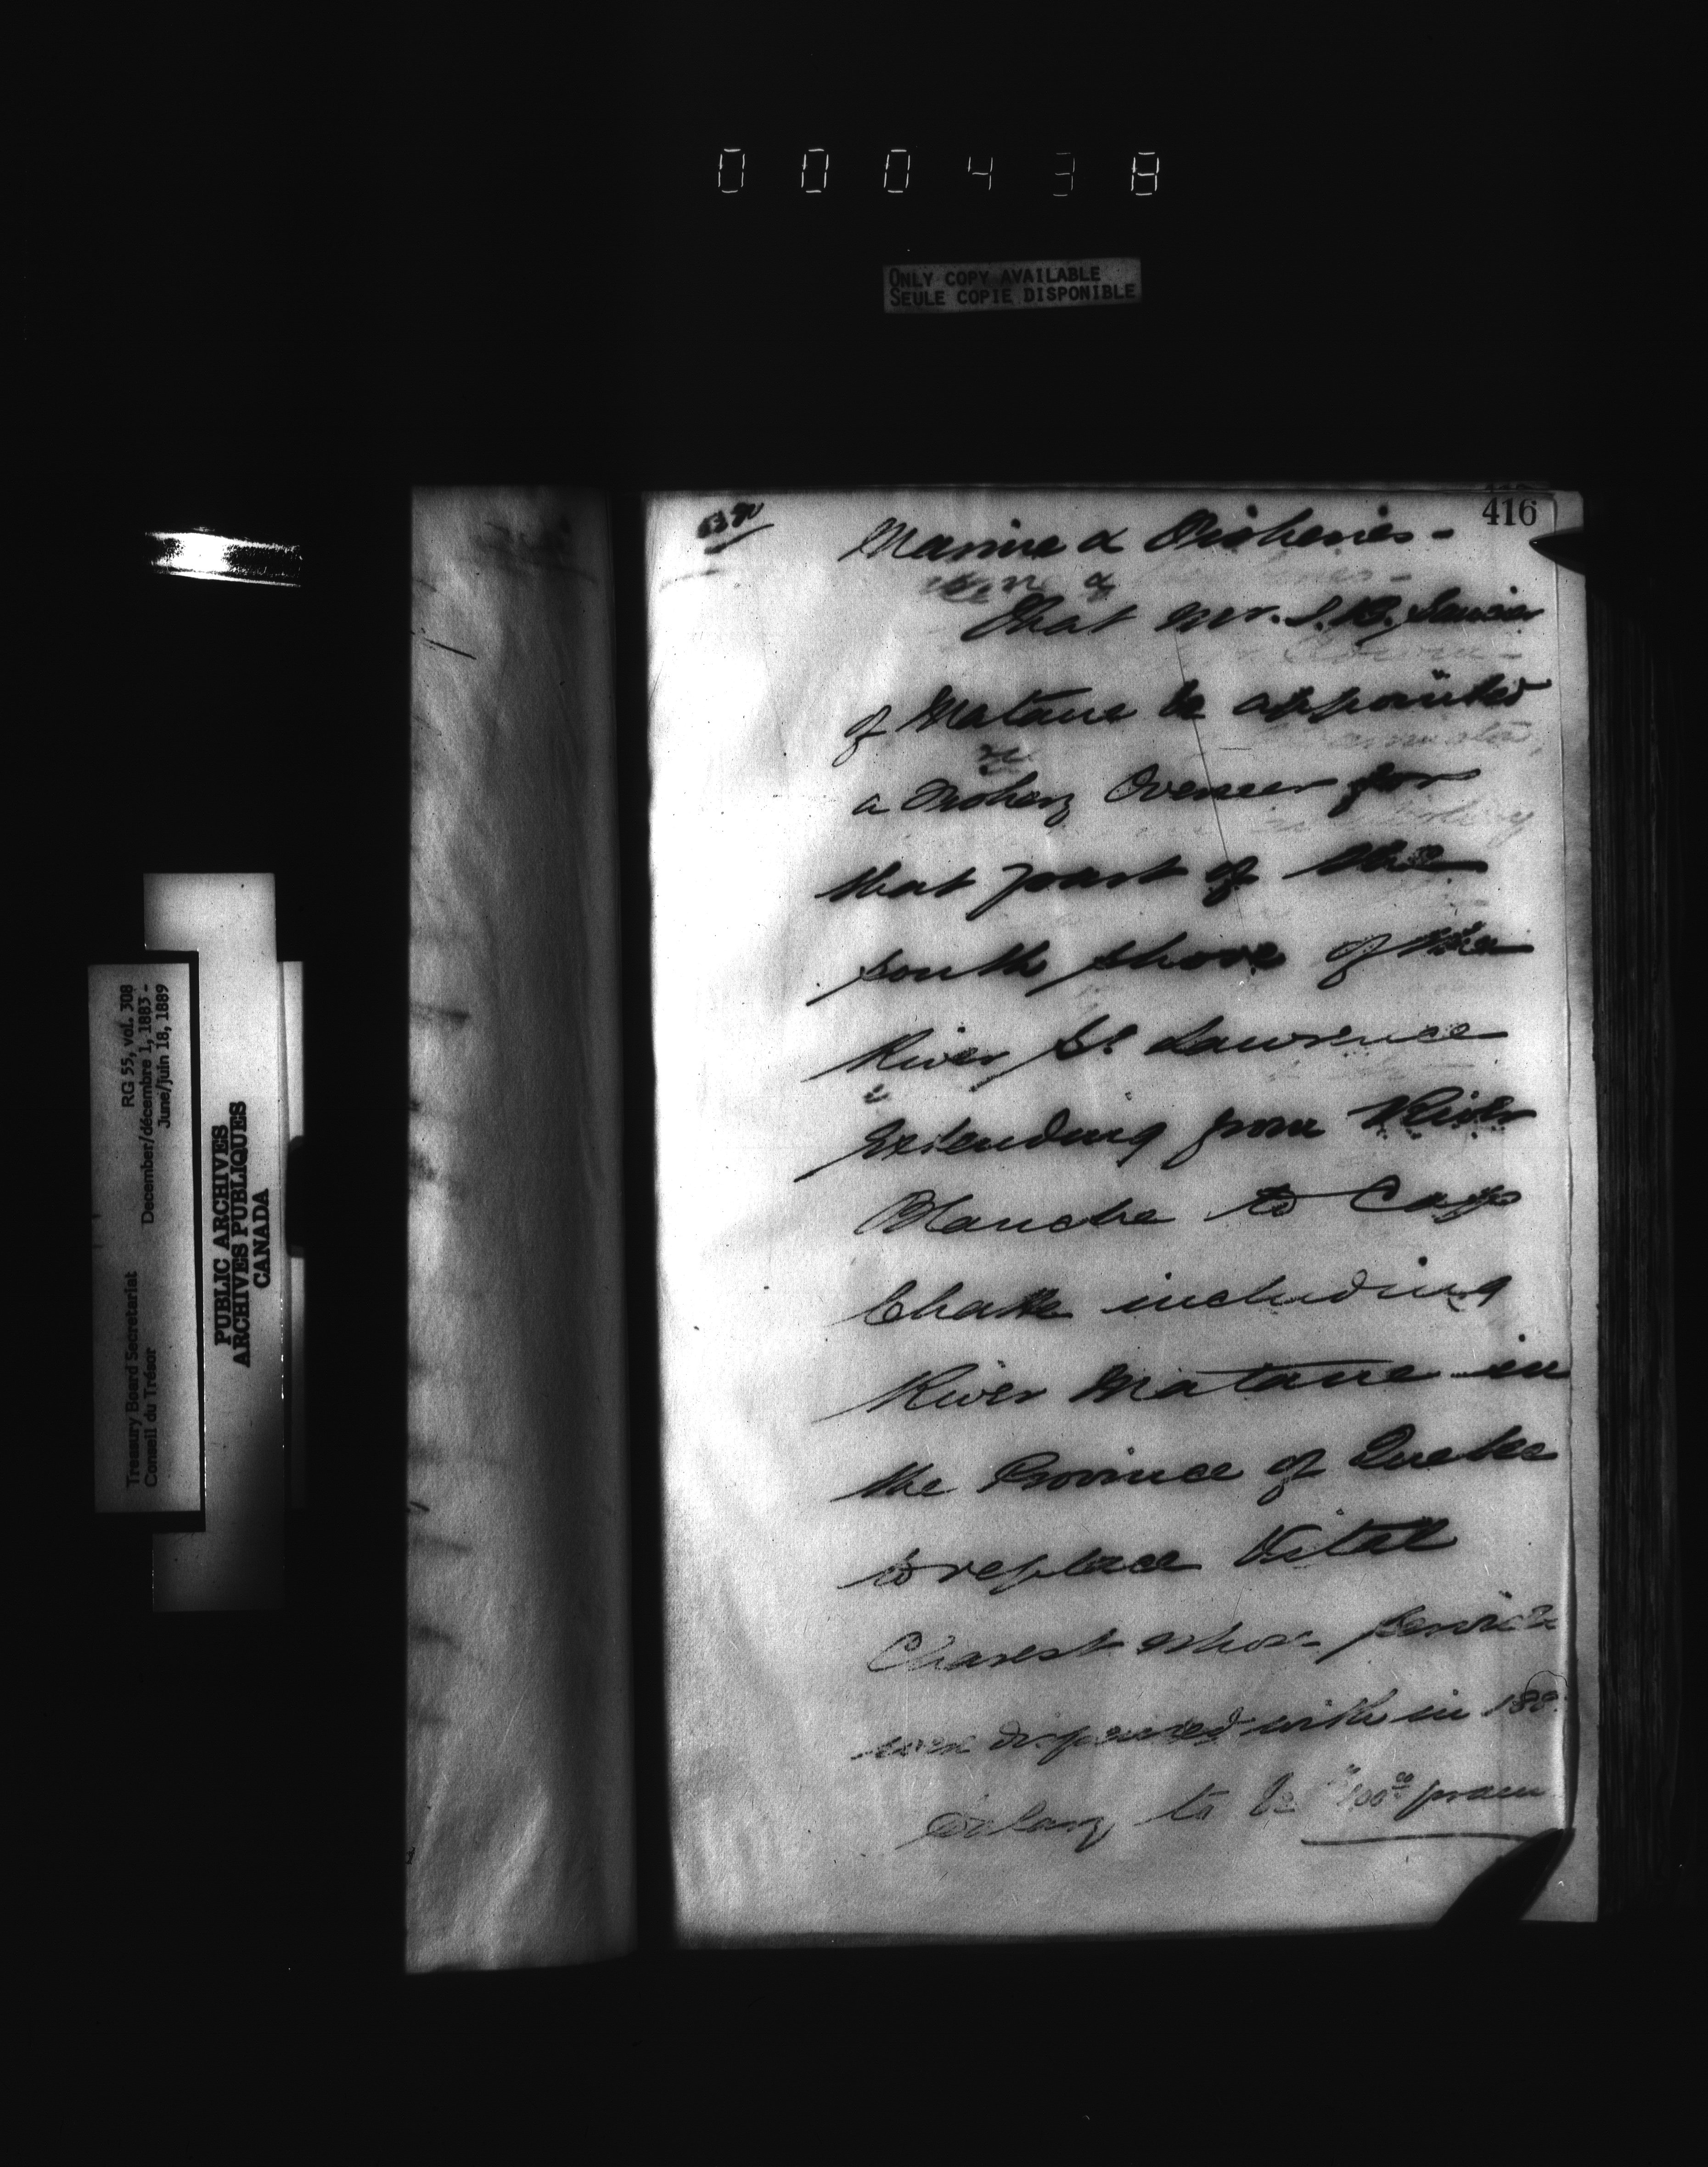 000438
ONLY COPY AVAILABLE
SEULE COPIE DISPONIBLE
416
Marine & Fisheries -
That Mr. J.B.
of Matane be appointed
a Fishery Overseer for
that part of the
south shore of the
River St Lawrence
extending from River
Blanche to Cape
Chatte including
River Matane in
the Province of Quebec
to replace Vital
Charest whose services
were dispensed with in
Salary to be
Treasury Board Secretariat
Conseil du Trésor
RG 55, vol. 308
December/décembre 1, 1883 -
June/juin 18, 1889
PUBLIC ARCHIVES
ARCHIVES PUBLIQUES
CANADA